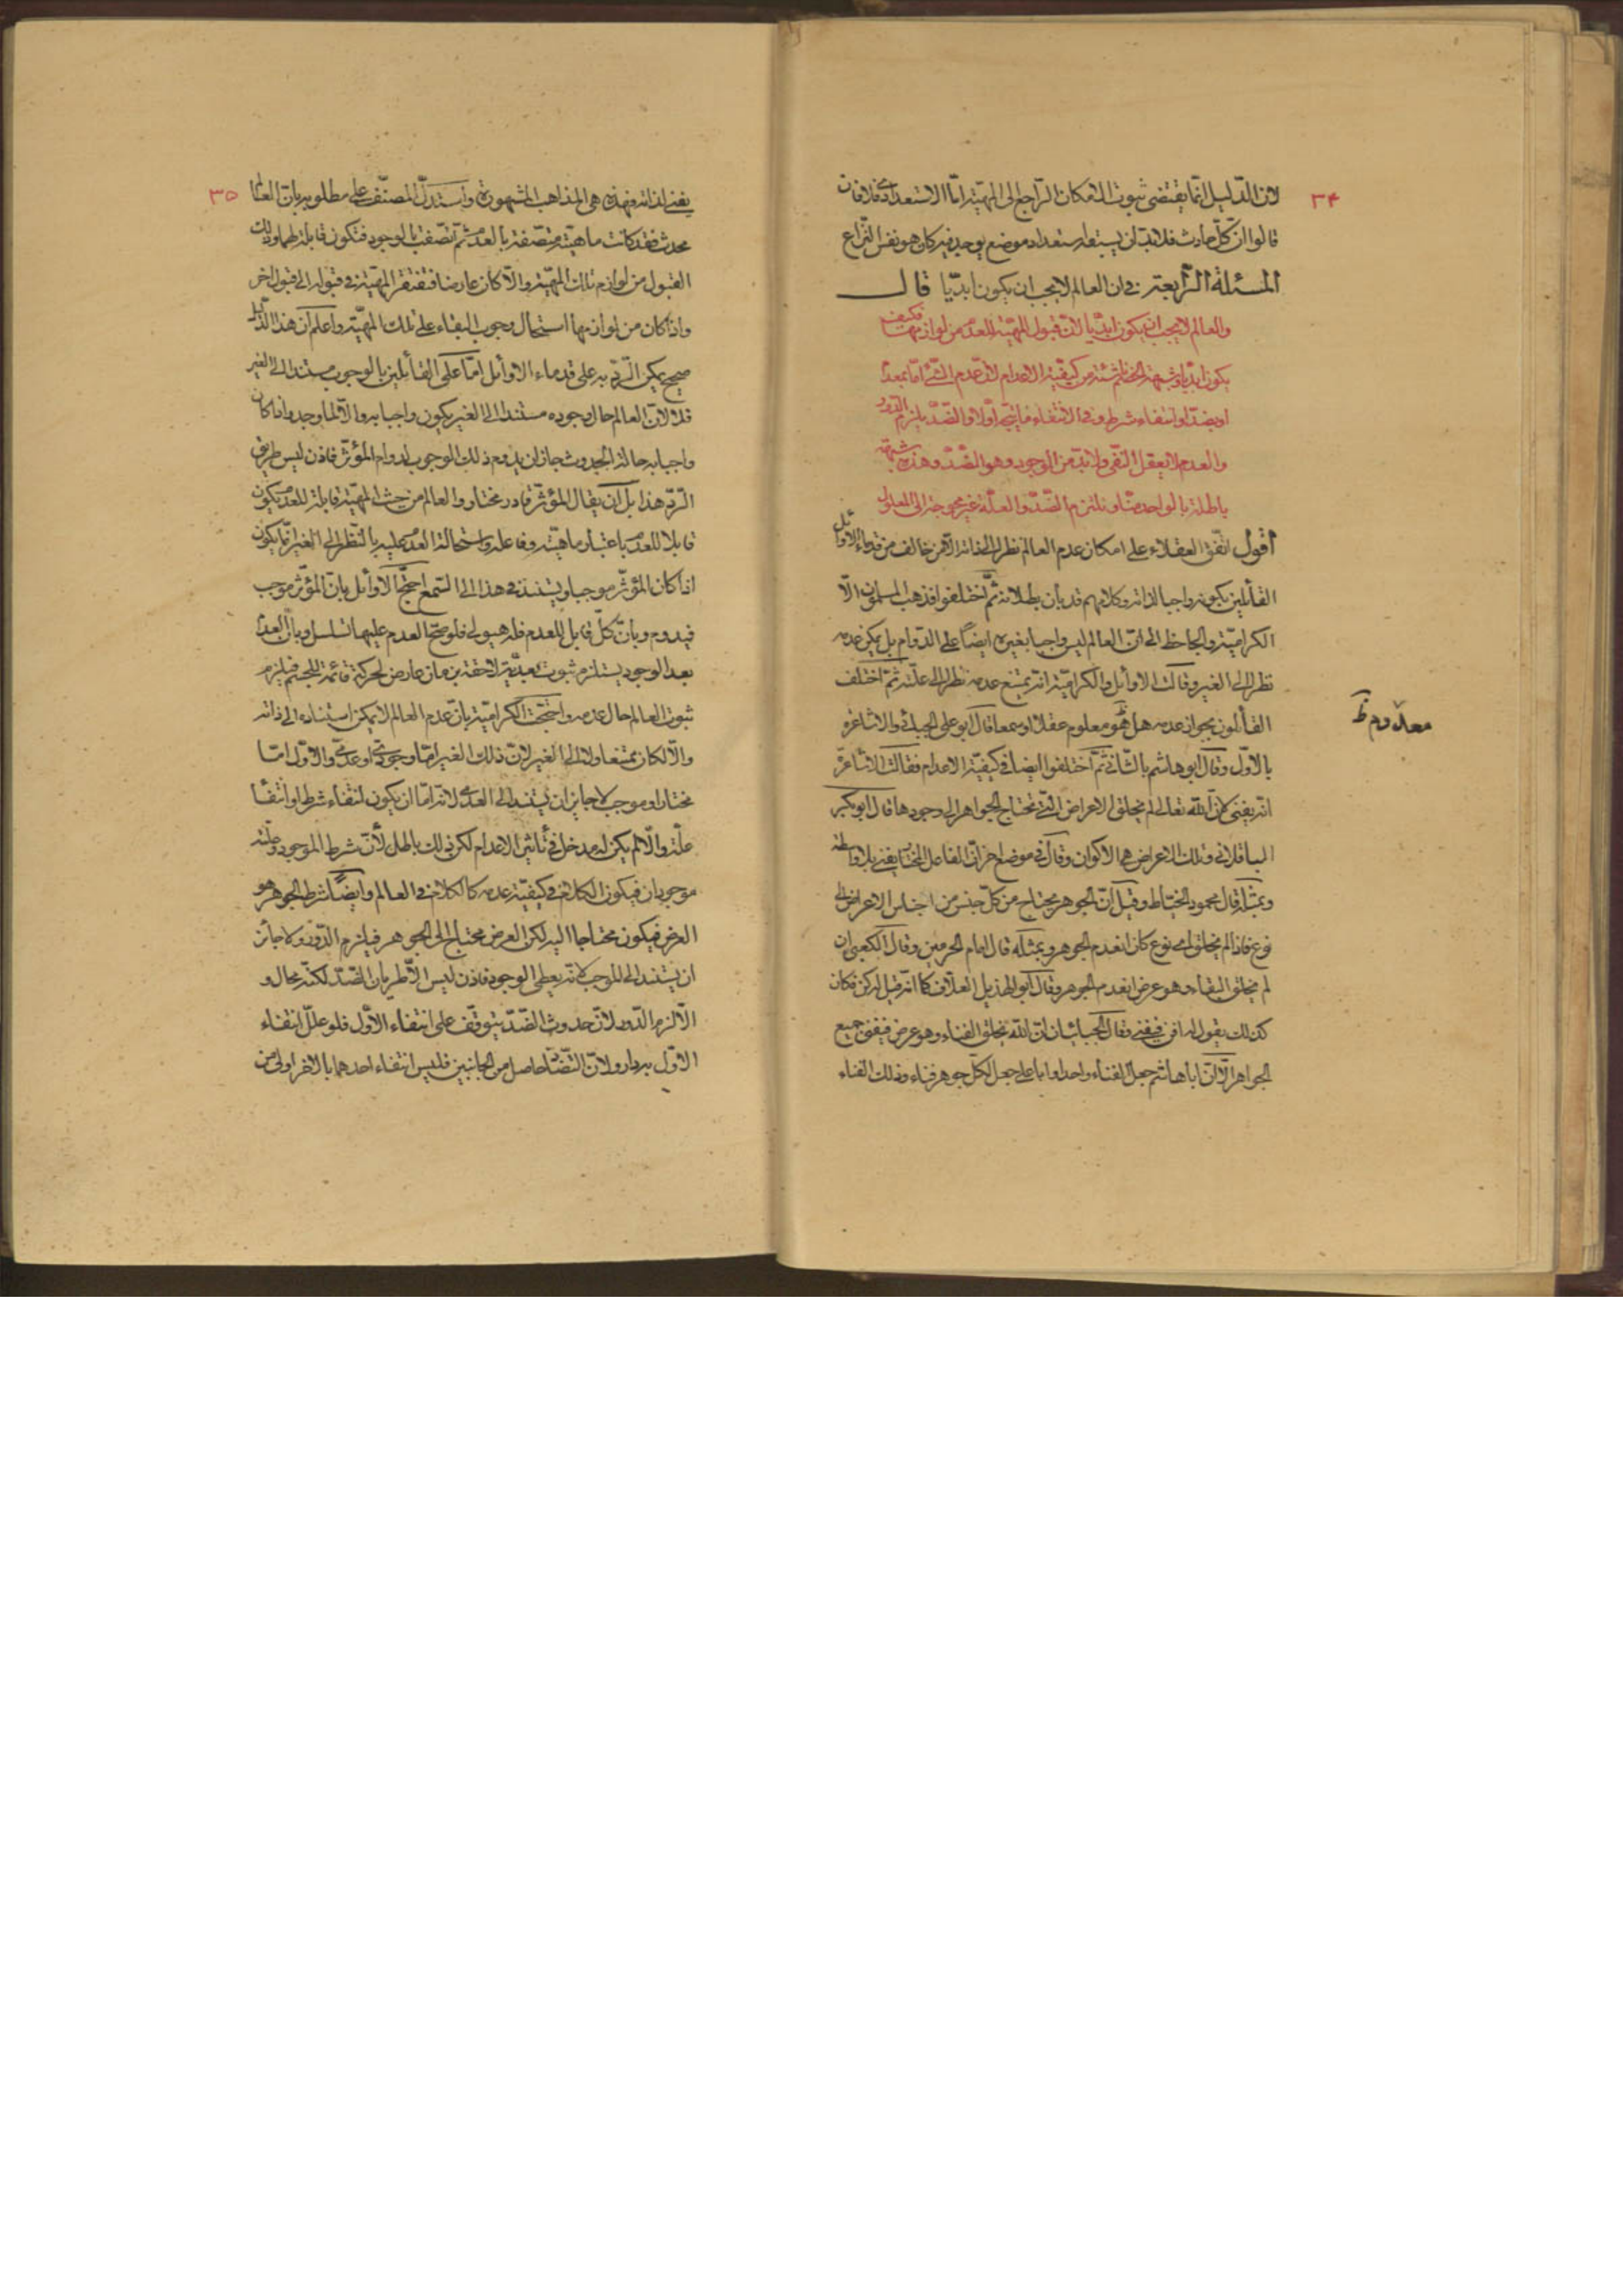 ٣۴
لان الدّليل انّما يقتضى ثبوت الامكان الرّاجع الى المهيّة امّا الاستعدادى فلا فان
قالوا انّ كلّ حادث فلا بدّ ان يسبقه استعداد موضع يوجد فيه كان هو نفس النّزاع
المسئلة الرّابعة فى ان العالم لا يجب ان يكون ابديّا قال
والعالم لا يجب ان يكون ابديّا لانّ قبول المهيّة للعدم من لوازمها فكيف
يكون ابديّا وشبهة الخصم من كيفيّة الاعدام لانّ عدم الشّئ امّا بمعدم
او بضدّ او انتفاء شرط وفى الانتفاء ما يتجه اوّلا والضّدّ يلزم الدّور
والعدم لا يعقل النّفى ولا بدّ من الوجود وهو الضّدّ وهذه شبهة
باطلة بالواحد منّا ونلتزم الضّدّ والعلّة غير محوجة الى المعلول
اقول اتّفق العقلاء على امكان عدم العالم نظرا الى ذاته الّا من خالف من قدماء الاوائل
القائلين بكونه واجبا لذاته وكلامهم قد بان بطلانه ثمّ اختلفوا فذهب المسلمون الّا
الكراميّة والجاحظ الى انّ العالم ليس واجبا بغيره ايضاً على الدّوام بل يمكن عدمه
نظرا الى الغير وقالت الاوائل والكراميّة انّه يمتنع عدمه نظرا الى علّته ثمّ اختلف
القائلون بجواز عدمه هل هو معلوم عقلا او سمعا قال ابو على الجبائى والاشاعرة
معدوم ظ
بالاوّل وقال ابو هاشم بالثّانى ثمّ اختلفوا ايضا فى كيفيّة الاعدام فقالت الاشاعرة
انّه يفنى لانّ الله تعالى لم يخلق الاعراض الّتى تحتاج الجواهر الى وجودها قال ابو بكر
الباقلانى وتلك الاعراض هى الاكوان وقال فى موضع اخر انّ الفاعل المختار يفنى بلا واسطة
وبمثله قال محمود الخيّاط وقيل انّ الجوهر يحتاج من كلّ جنس من اجناس الاعراض الى
نوع فاذا لم يخلق اى نوع كان انعدم الجوهر وبمثله قال امام الحرمين وقال الكعبى ان
لم يخلق البقاء وهو عرض انعدم الجوهر وقال ابو الهذيل العلّاف كما انّه قيل له كن فكان
كذلك يقول له افن فيفنى وقال الجبائيان انّ الله يخلق الفناء وهو عرض فيفنى جميع
الجواهر الّا انّ ابا هاشم جعل الفناء واحدا وابا على جعل لكل جوهر فناء وذلك الفناء
٣٥
يفنى لذاته فهذه هى المذاهب المشهورة واستدلّ المصنّف على مطلوبه بانّ العالم
محدث فقد كانت ماهيّته متّصفة بالعدم ثمّ اتّصفت بالوجود فتكون قابلة لهما وذلك
القبول من لوازم تلك المهيّة والّا كان عارضا فتفتقر المهيّة فى قبوله الى قبول اخر
واذا كان من لوازمها استحال وجوب البقاء على تلك المهيّة واعلم ان هذا الدّليل
صحيح يمكن الرّدّ به على قدماء الاوائل امّا على القائلين بالوجوب مستندا الى الغير
فلا لانّ العالم حال وجوده مستندا الى الغير يكون واجبا به والّا لما وجد واذا كان
واجبا به حالة الحدوث جاز ان يدوم ذلك الوجوب لدوام المؤثّر فاذن ليس طريق
الرّدّ هذا بل ان يقال المؤثّر قادر مختار والعالم من حيث المهيّة قابلة للعدم يكون
قابلا للعدم باعتبار ماهيّته وفاعله واستحالة العدم عليه بالنّظر الى الغير انّما يكون
اذا كان المؤثّر موجبا ويستند فى هذا الى السّمع احتجّ الاوائل بانّ المؤثّر موجب
فيدوم وبانّ كلّ قابل للعدم فله هيولى فلو صحّ العدم عليها تسلسل وبانّ العدم
بعد الوجود يستلزم ثبوت بعديّة لاحقة بزمان عارض لحركة قائمة للجسم فيلزم
ثبوت العالم حال عدمه واحتجّت الكراميّة بانّ عدم العالم لا يمكن استناده الى ذاته
والّا لكان ممتنعا ولا الى الغير لانّ ذلك الغير امّا وجودى او عدمىّ والاوّل امّا
مختار او موجب لا جايز ان يستند الى العدمى لانّه امّا ان يكون انتفاء شرط او انتفاء
علّة والّا لم يكن له مدخل فى تأثير الاعدام لكن ذلك باطل لأنّ شرط الموجود وعلّته
موجودان فيكون الكلام فى كيفيّة عدمه كالكلام فى العالم وايضاً شرط الجوهر هو
العرض فيكون محتاجا اليه لكن العرض محتاج الى الجوهر فيلزم الدّور ولا جائز
ان يستند الى الموجب لانّه يعطى الوجود فاذن ليس الّا طريان الضّدّ لكنّه محال و
الّا لزم الدّور لانّ حدوث الضّدّ يتوقّف على انتفاء الاوّل فلو علّل انتفاء
الاوّل به دار ولانّ التّضّاد حاصل من الجانبين فليس انتفاء احدهما بالاخر اولى من